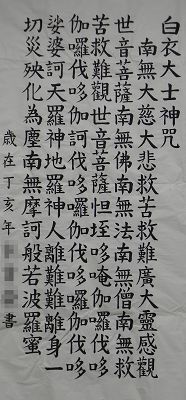 白衣大士神咒
南無大慈大悲救苦救難廣大靈感觀
世音菩薩南無佛南無法南無僧南無救
苦救難觀世音菩薩怛垤哆唵伽囉伐哆
伽囉伐哆伽訶伐哆囉伽伐哆囉伽伐哆
娑婆訶天羅神地羅神人離難難離身一
切災殃化為塵南無摩訶般若波羅蜜
歲在丁亥年 書